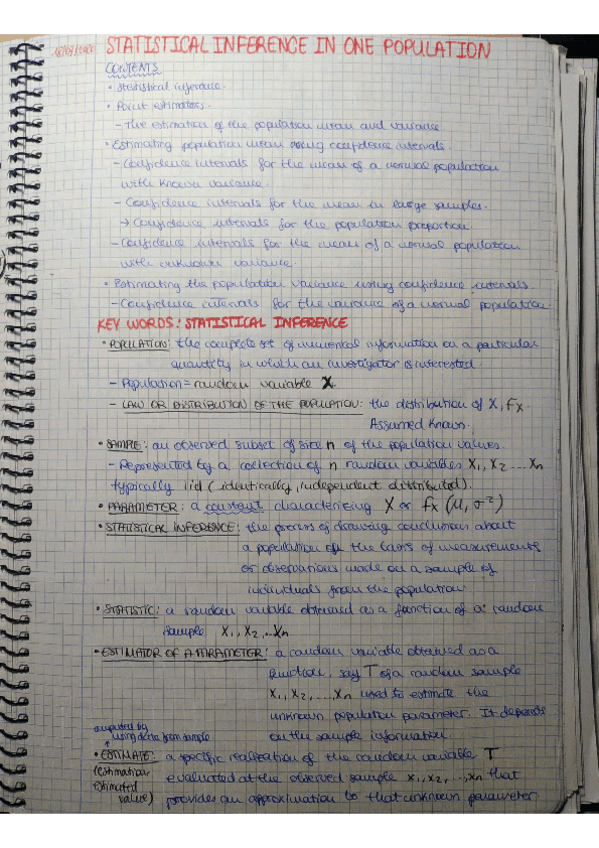 STATISTICAL INFERENCE IN ONE POPULATION
CONTENTS
• Statistical inference.
• Point estimators.
- The estimation of the population mean and variance
• Estimating population mean using confidence intervals.
- Confidence intervals for the mean of a normal population
with known variance.
- Confidence intervals for the mean in large samples.
→ Confidence intervals for the population proportion
- Confidence intervals for the mean of a normal population
with unknown variance.
• Estimating the population variance using confidence intervals.
- Confidence intervals for the variance of a normal population.
KEY WORDS: STATISTICAL INFERENCE
• POPULATION: the complete set of numerical information on a particular
quantity in which an investigator is interested.
- Population = random variable X.
- LAW OR DISTRIBUTION OF THE POPULATION: the distribution of X, Fx.
Assumed known.
• SAMPLE: an observed subset of size n of the population values.
- Represented by a collection of n random variables X₁, X₂ ... Xn
typically iid (identically, independent distributed).
• PARAMETER: a constant characterizing X or Fx (μ, σ²)
• STATISTICAL INFERENCE: the process of drawing conclusions about
a population on the basis of measurements
or observations made on a sample of
individuals from the population
• STATISTIC: a random variable obtained as a function of a random
sample X₁, X₂, ...Xn
• ESTIMATOR OF A PARAMETER: a random variable obtained as a
function, say T of a random sample
X₁, X₂, ..., Xn used to estimate the
unknown population parameter. It depends
on the sample information.
computed by
using data from sample
• ESTIMATE: a specific realization of the random variable T
(estimation, evaluated at the observed sample x₁, x₂, ..., xn that
estimated
value) provides an approximation to that unknown parameter.